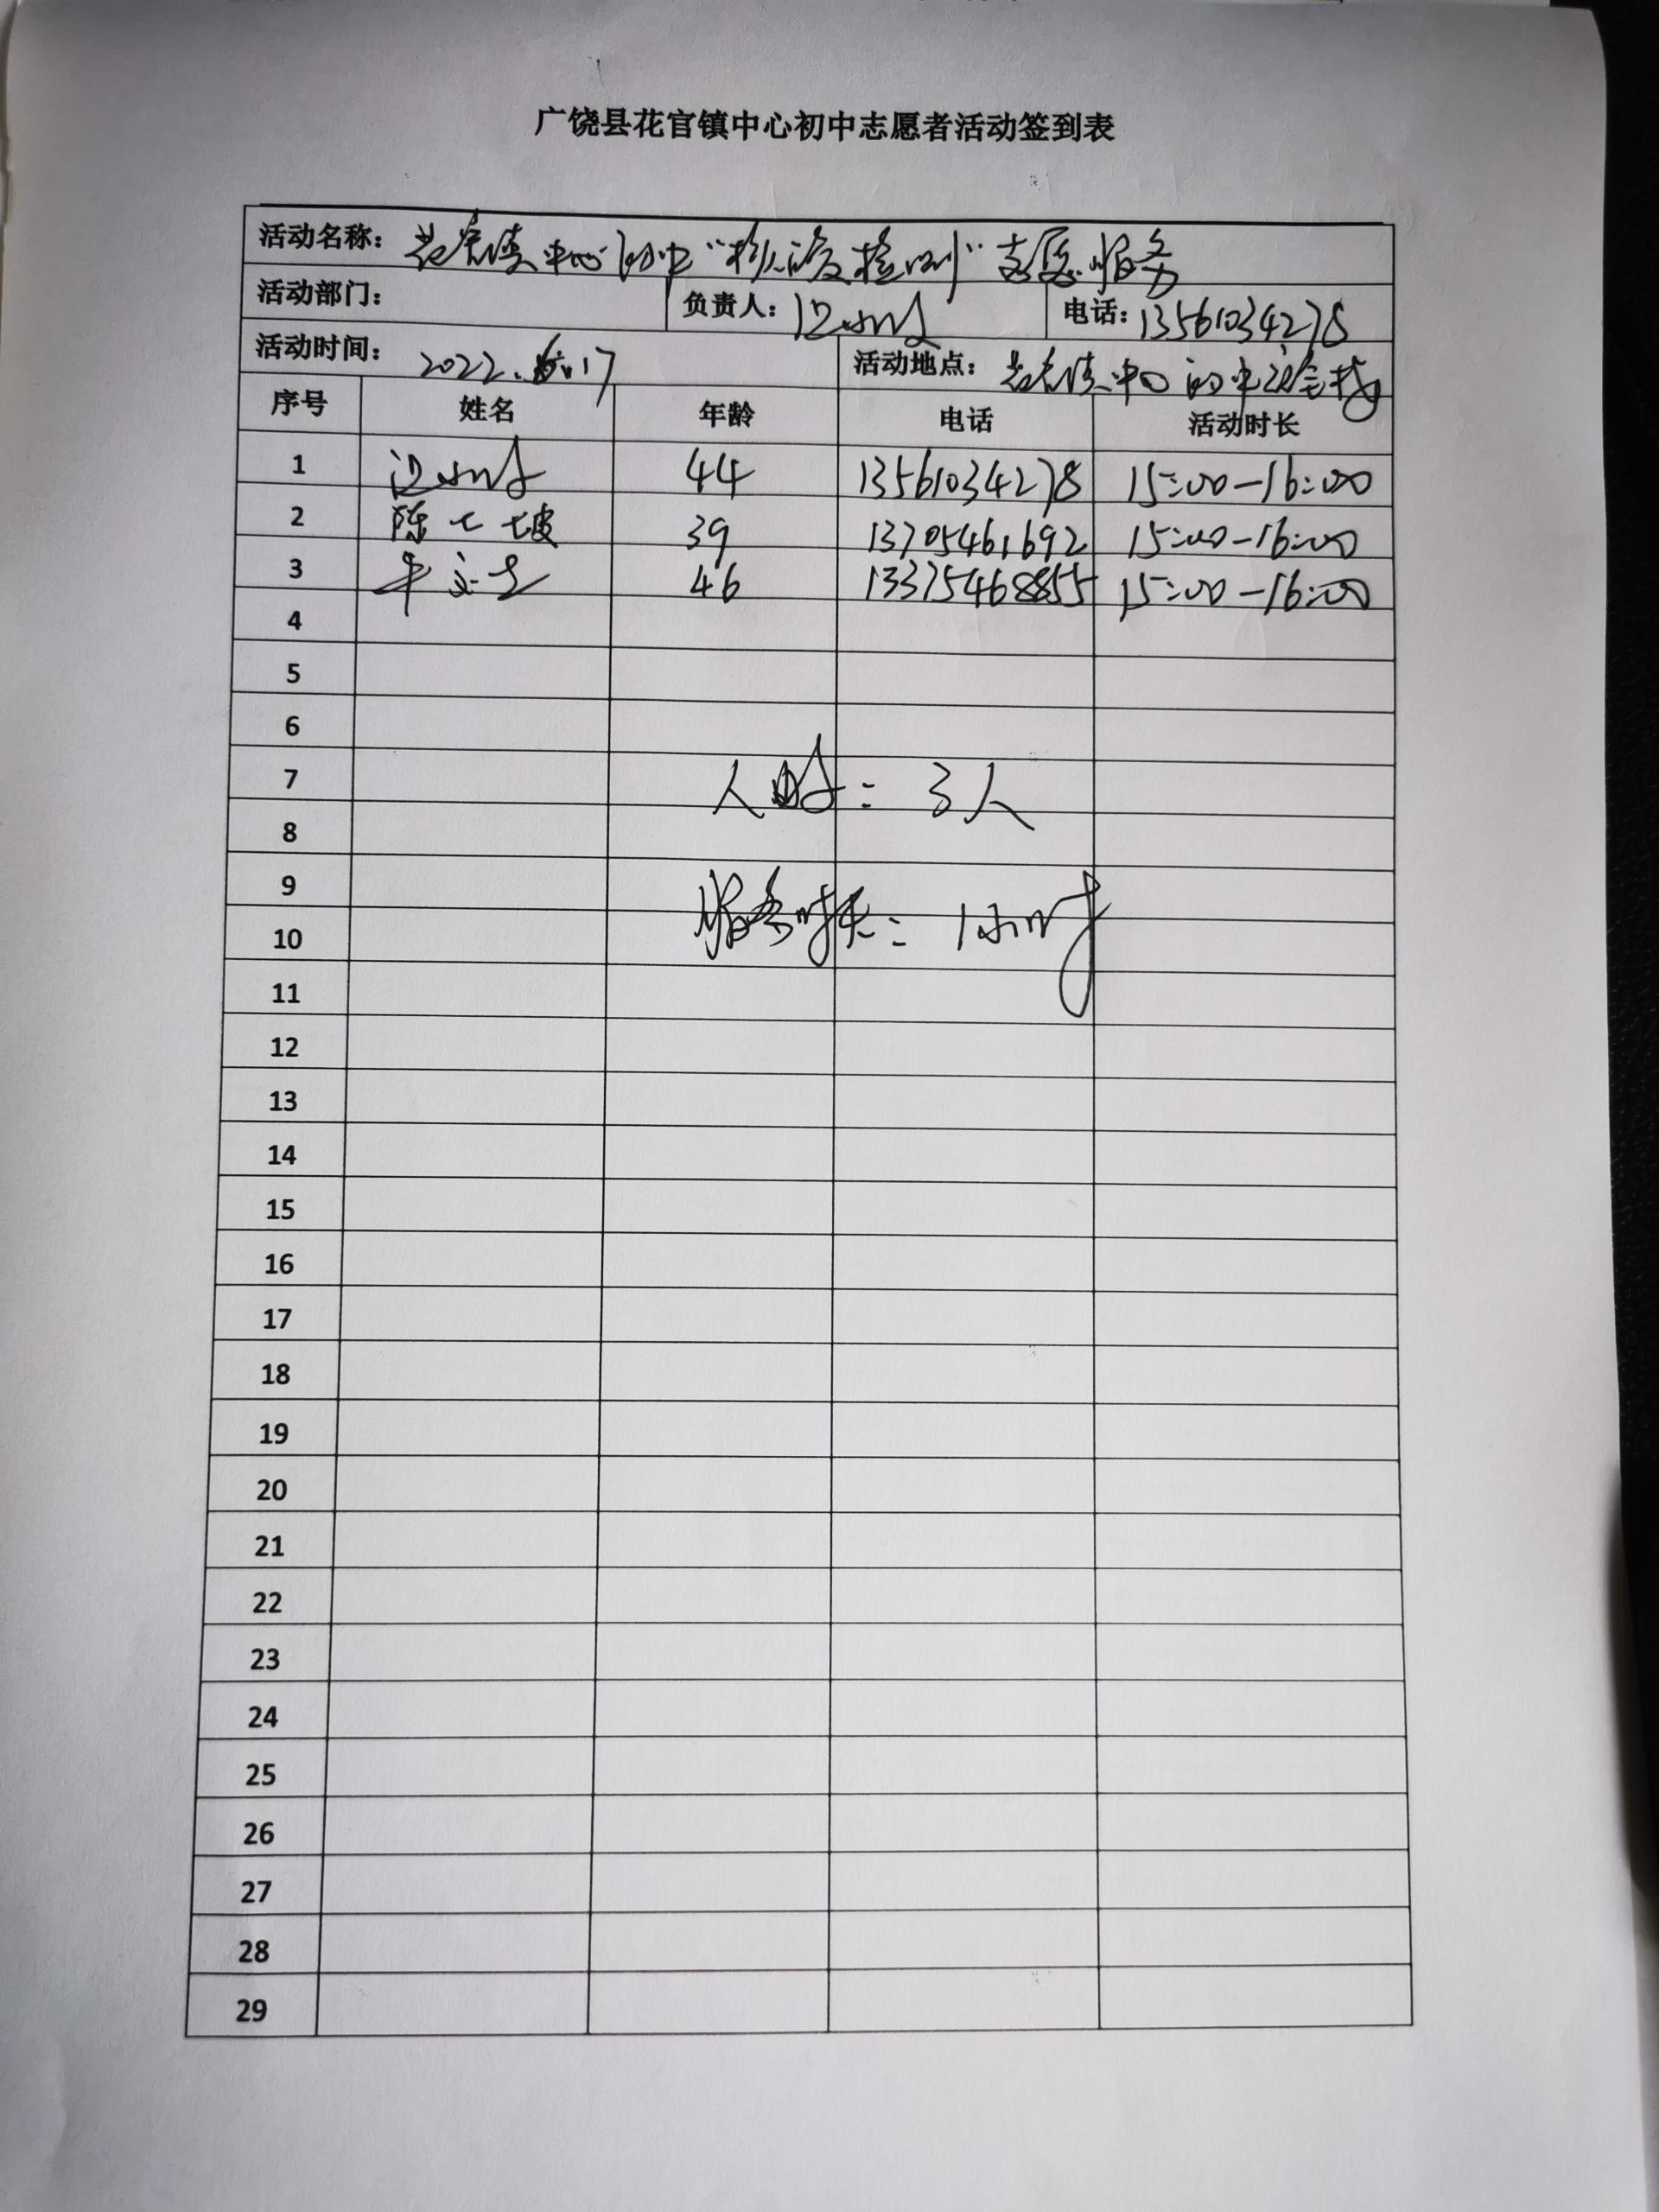 广饶县花官镇中心初中志愿者活动签到表
活动名称： 花官镇中心初中“核酸检测”志愿服务
活动部门： 负责人： 电话：13561034278
活动时间： 2022. 17 活动地点： 花官镇中心初中
序号 姓名 年龄 电话 活动时长
1 44 13561034278 15:00-16:00
2 陈 39 13705461692 15:00-16:00
3 46 13375468855 15:00-16:00
4
5
6
7
人时： 3人
8
9
服务时长： 1小时
10
11
12
13
14
15
16
17
18
19
20
21
22
23
24
25
26
27
28
29